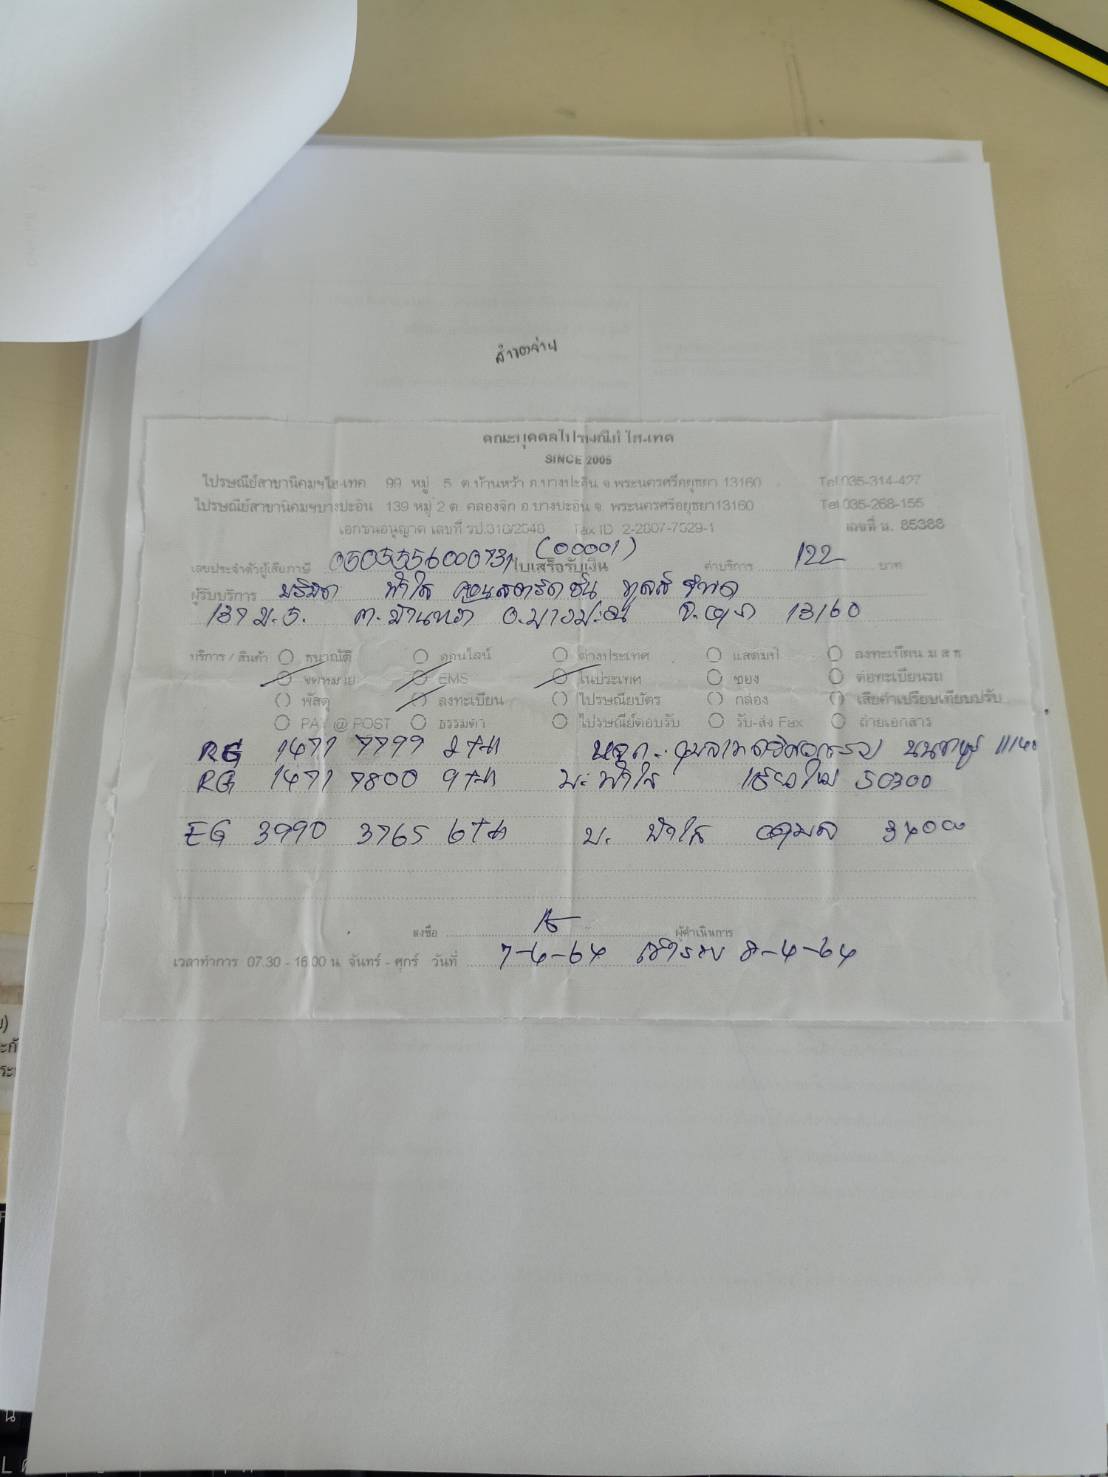 สำรองจ่าย
คณะบุคคลไปรษณีย์ ไฮ-เทค
SINCE 2005
ไปรษณีย์สาขานิคมฯไฮ-เทค 99 หมู่ 5 ต.บ้านหว้า อ.บางปะอิน จ.พระนครศรีอยุธยา 13160 Tel.035-314-427
ไปรษณีย์สาขานิคมฯบางปะอิน 139 หมู่ 2 ต. คลองจิก อ.บางปะอิน จ. พระนครศรีอยุธยา 13160 Tel.035-268-155
เอกชนอนุญาต เลขที่ รป.310/2548 Tax ID 2-2807-7529-1 เลขที่ น. 85388
เลขประจำตัวผู้เสียภาษี 0505556000731 (00001) ใบเสร็จรับเงิน ค่าบริการ 122 บาท
ผู้รับบริการ บริษัท ฟ้าใส คอนสตรัคชั่น ทูลส์ จำกัด
137 ม.5. ต.บ้านหว้า อ.บางปะอิน จ.อยุธยา 13160
บริการ / สินค้า ธนาณัติ ออนไลน์ ต่างประเทศ แสตมป์ ลงทะเบียน ม ส ธ
จดหมาย EMS ในประเทศ ซอง ต่อทะเบียนรถ
พัสดุ ลงทะเบียน ไปรษณียบัตร กล่อง เสียค่าเปรียบเทียบปรับ
PAY @ POST ธรรมดา ไปรษณีย์ตอบรับ รับ-ส่ง Fax ถ่ายเอกสาร
RG 1471 7799 2TH หจก. นนทบุรี 11140
RG 1471 7800 9TH บ. ฟ้าใส เชียงใหม่ 50300
EG 3990 3765 6TH บ. ฟ้าใส อุบล 34000
ลงชื่อ ผู้ดำเนินการ
เวลาทำการ 07.30 - 16.00 น. จันทร์ - ศุกร์ วันที่ 7-4-64 8-4-64